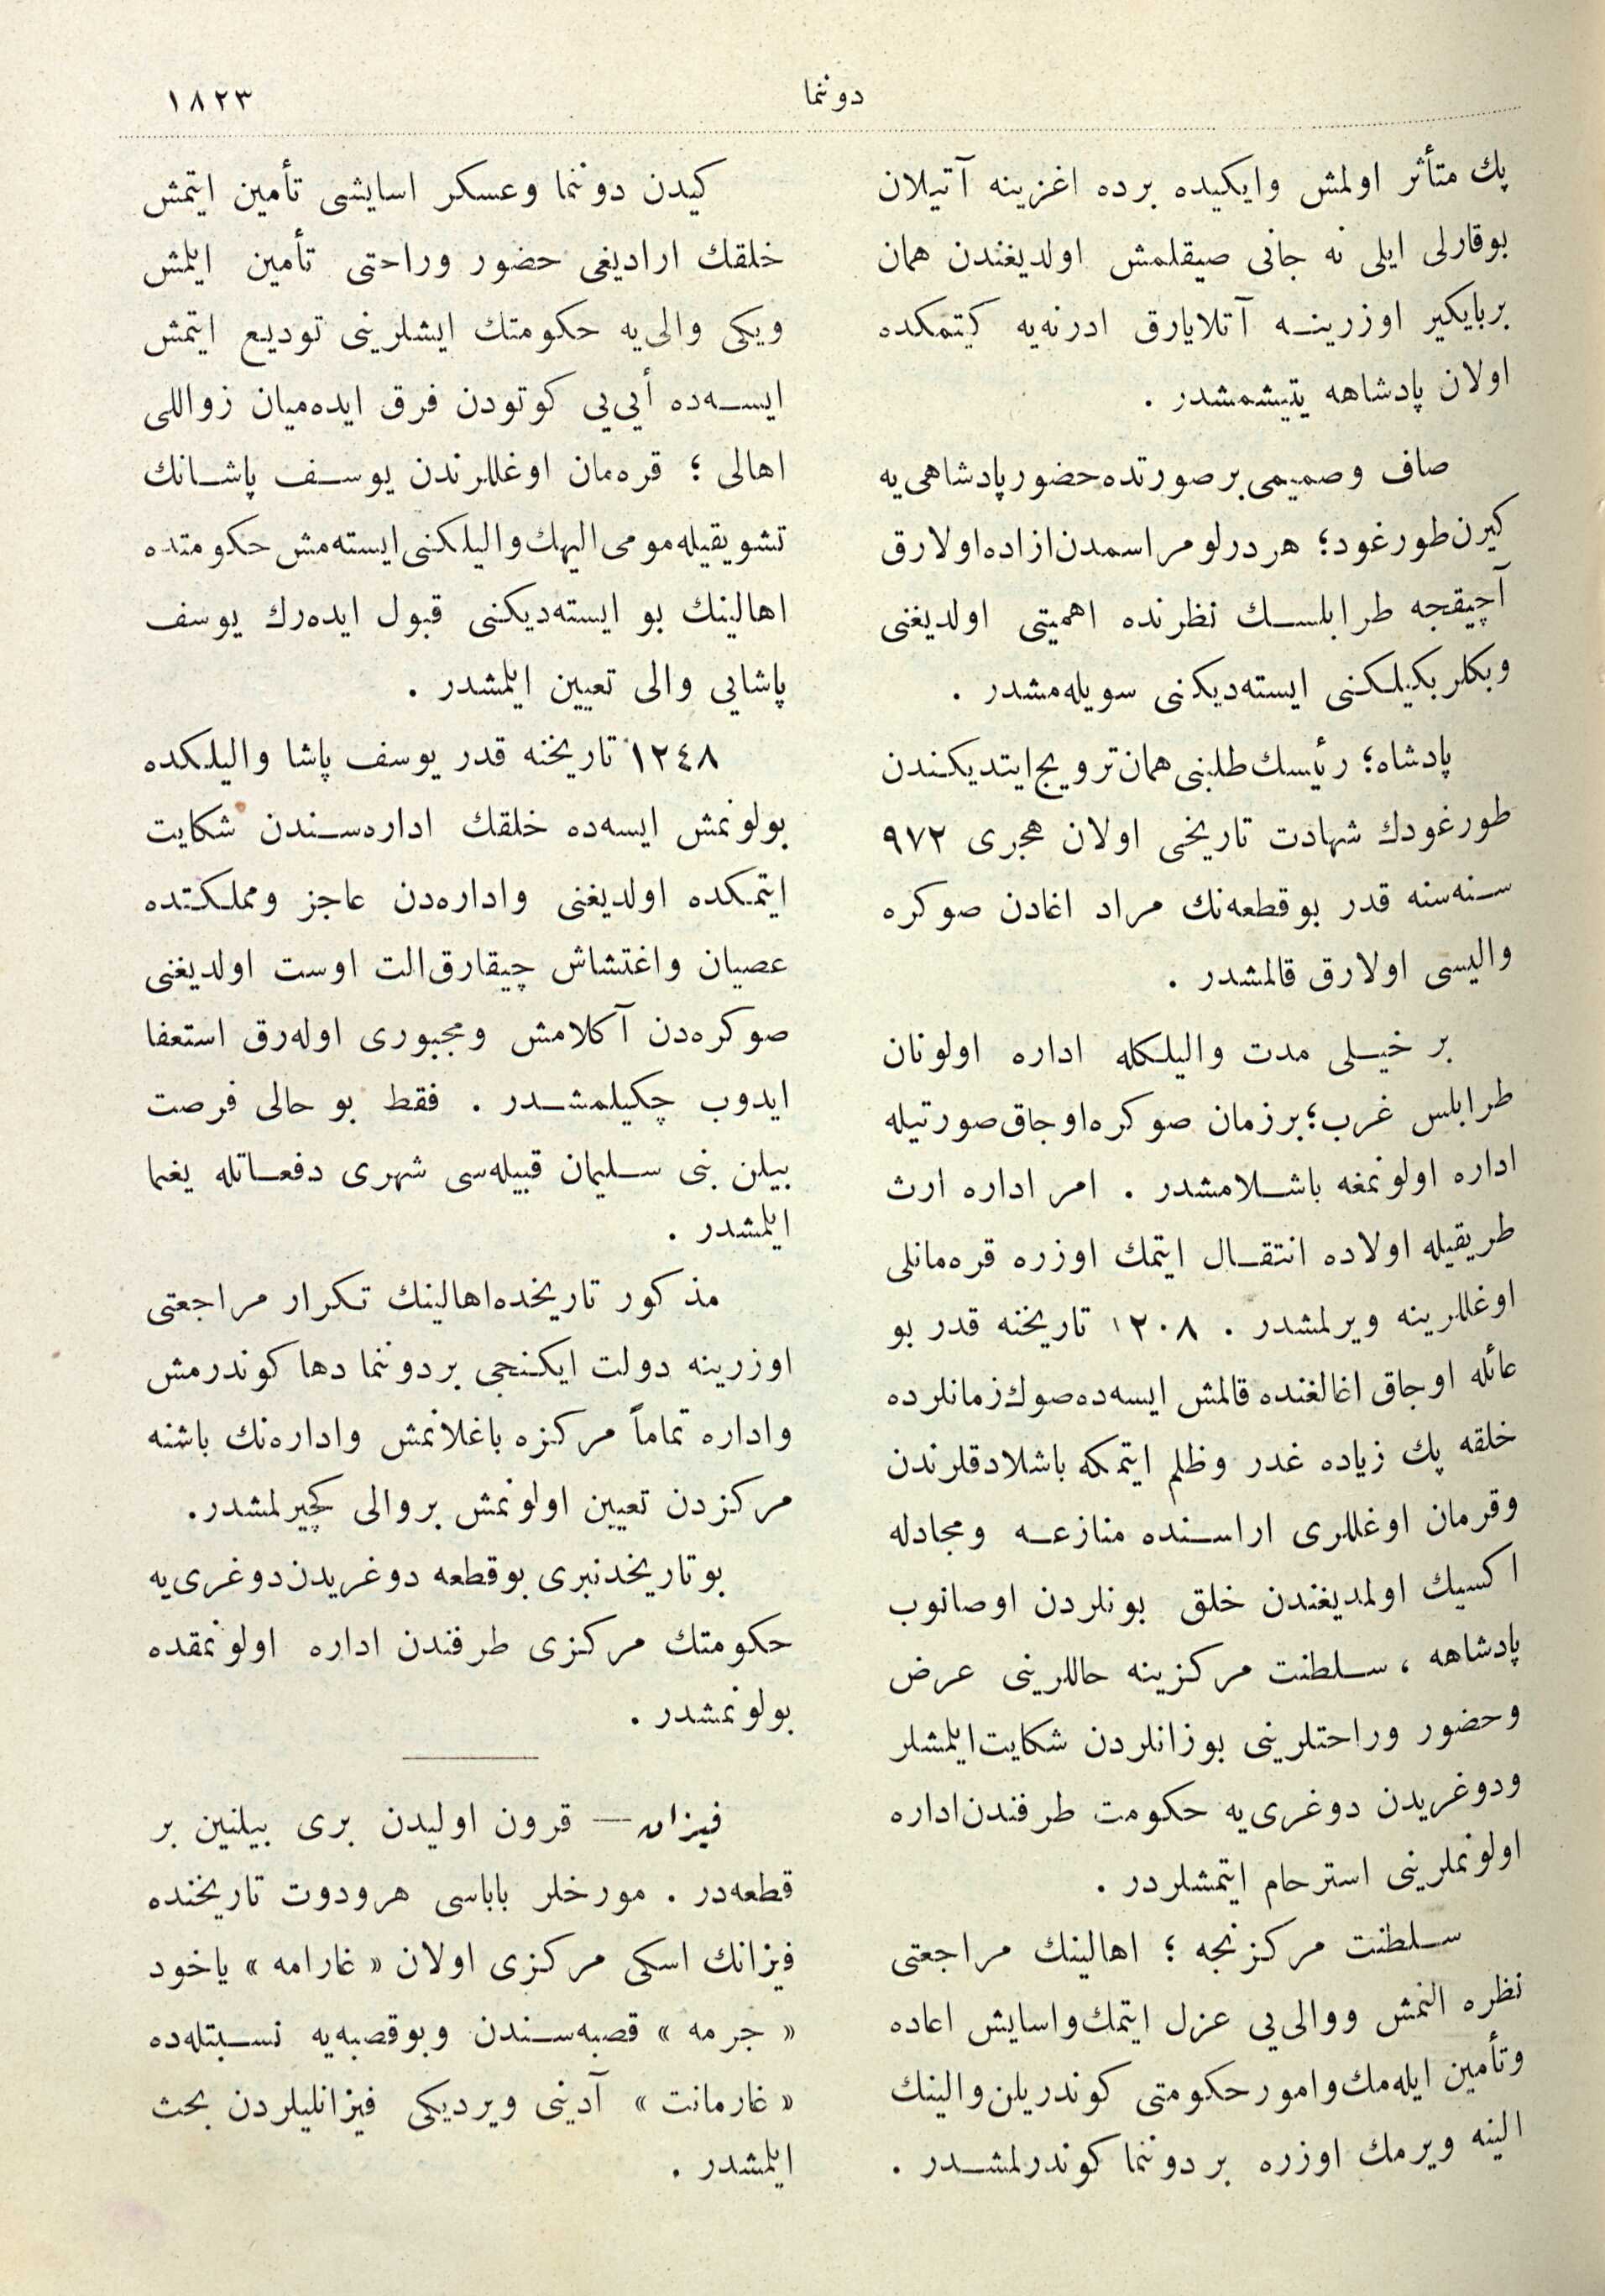 دونما
١٨٢٣
پك متأثر اولمش وايكيده برده اغزينه آتيلان
بوقارلى ايلى نه جانى صيقلمش اولديغندن همان
بربايكير اوزرينه آتلايارق ادرنه‌يه كيتمكده
اولان پادشاهه يتيشمشدر .
صاف وصميمى بر صورتده حضور پادشاهى‌يه
كيرن طورغود؛ هر درلو مراسمدن ازاده اولارق
آچيقجه طرابلسك نظرنده اهميتى اولديغنى
وبكلر بكيلكنى ايسته‌ديكنى سويله‌مشدر .
پادشاه؛ رئيسك طلبنى همان ترويج ايتديكندن
طورغودك شهادت تاريخى اولان هجرى ٩٧٢
سنه‌سنه قدر بوقطعه‌نك مراد اغادن صوكره
واليسى اولارق قالمشدر .
بر خيلى مدت واليلكله اداره اولونان
طرابلس غرب؛ برزمان صوكره اوجاق صورتيله
اداره اولونمغه باشلامشدر . امر اداره ارث
طريقيله اولاده انتقال ايتمك اوزره قره‌مانلى
اوغللرينه ويرلمشدر . ١٢٠٨ تاريخنه قدر بو
عائله اوجاق اغالغنده قالمش ايسه‌ده صوك زمانلرده
خلقه پك زياده غدر وظلم ايتمكه باشلادقلرندن
وقرمان اوغللرى اراسنده منازعه ومجادله
اكسيك اولمديغندن خلق بونلردن اوصانوب
پادشاهه ، سلطنت مركزينه حاللرينى عرض
وحضور وراحتلرينى بوزانلردن شكايت ايلمشلر
ودوغريدن دوغرى‌يه حكومت طرفندن اداره
اولونملرينى استرحام ايتمشلردر .
سلطنت مركزنجه ؛ اهالينك مراجعتى
نظره النمش ووالى‌يى عزل ايتمك واسايش اعاده
وتأمين ايله‌مك وامور حكومتى كوندريلن والينك
الينه ويرمك اوزره بر دوننما كوندرلمشدر .
كيدن دوننما وعسكر اسايشى تأمين ايتمش
خلقك اراديغى حضور وراحتى تأمين ايلمش
ويكى والى‌يه حكومتك ايشلرينى توديع ايتمش
ايسه‌ده أيى‌يى كوتودن فرق ايده‌ميان زواللى
اهالى ؛ قره‌مان اوغللرندن يوسف پاشانك
تشويقيله مومى اليهك واليلكنى ايسته‌مش حكومتده
اهالينك بو ايسته‌ديكنى قبول ايده‌رك يوسف
پاشايى والى تعيين ايلمشدر .
١٢٤٨ تاريخنه قدر يوسف پاشا واليلكده
بولونمش ايسه‌ده خلقك اداره‌سندن شكايت
ايتمكده اولديغنى واداره‌دن عاجز ومملكتده
عصيان واغتشاش چيقارق الت اوست اولديغنى
صوكره‌دن آكلامش ومجبورى اوله‌رق استعفا
ايدوب چكيلمشدر . فقط بو حالى فرصت
بيلن بنى سليمان قبيله‌سى شهرى دفعاتله يغما
ايلمشدر .
مذكور تاريخده اهالينك تكرار مراجعتى
اوزرينه دولت ايكنجى بر دوننما دها كوندرمش
واداره تماماً مركزه باغلانمش واداره‌نك باشنه
مركزدن تعيين اولونمش بر والى كچيرلمشدر.
بوتاريخدنبرى بوقطعه دوغريدن دوغرى‌يه
حكومتك مركزى طرفندن اداره اولونمقده
بولونمشدر .
فيزان — قرون اوليدن برى بيلنين بر
قطعه‌در . مورخلر باباسى هرودوت تاريخنده
فيزانك اسكى مركزى اولان « غارامه » ياخود
« جرمه » قصبه‌سندن وبوقصبه‌يه نسبتله‌ده
« غارمانت » آدينى ويرديكى فيزانليلردن بحث
ايلمشدر .